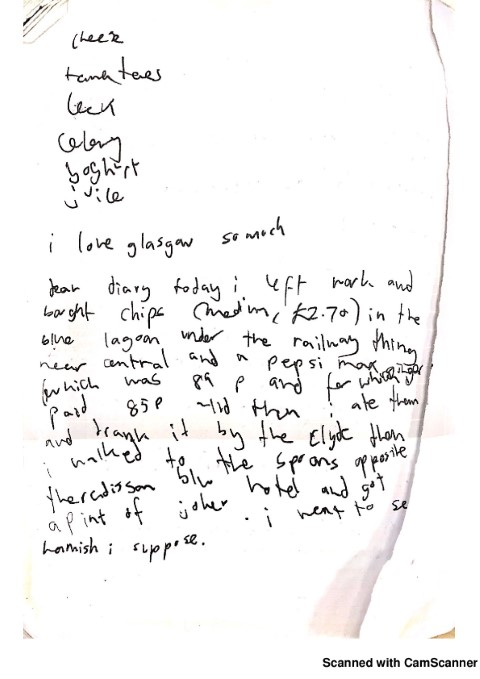 cheese
tomatoes
leek
celery
yoghurt
juice
i love glasgow so much
dear diary today i left work and
bought chips (medium, £2.70) in the
blue lagoon under the railway thing
near central and a pepsi max ginger
(which was 89 p and for which i
paid 85p then i ate them
and drank it by the clyde then
i walked to the spoons opposite
the radisson blu hotel and got
a pint of joker. i went to se
hamish i suppose.
Scanned with CamScanner